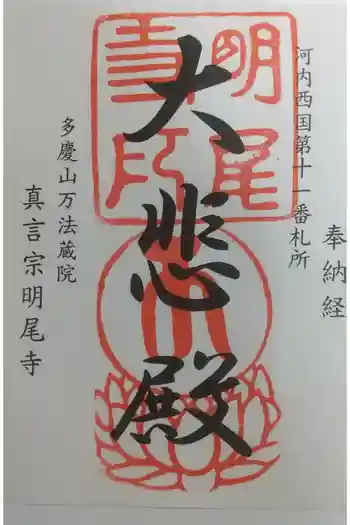 奉納経
河内西国第十一番札所
大悲殿
明尾寺印
多慶山万法蔵院
真言宗明尾寺